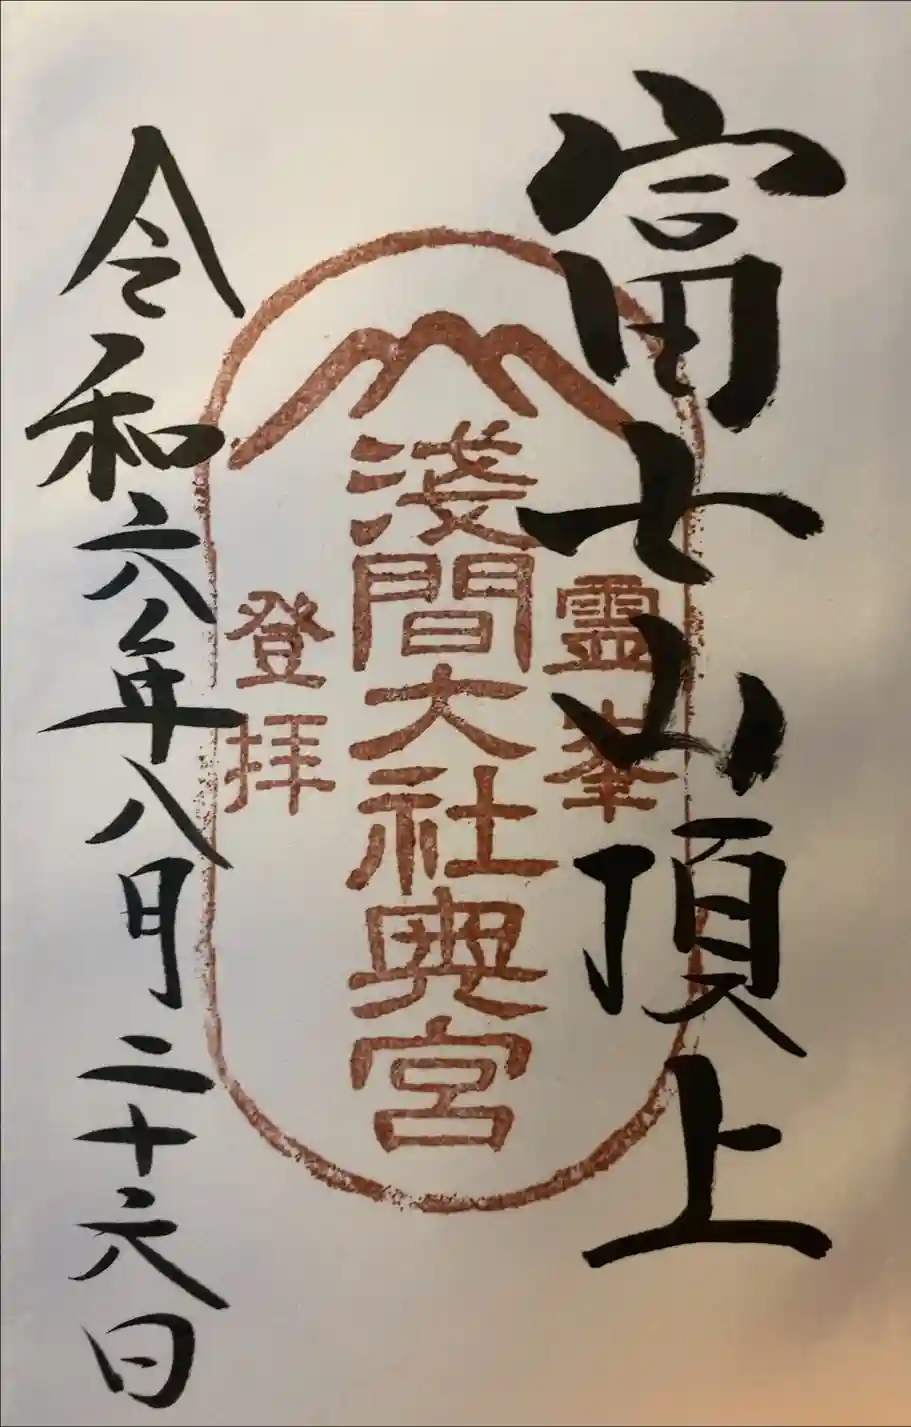 富士山頂上
霊峯
淺間大社奥宮
登拝
令和六年八月二十六日